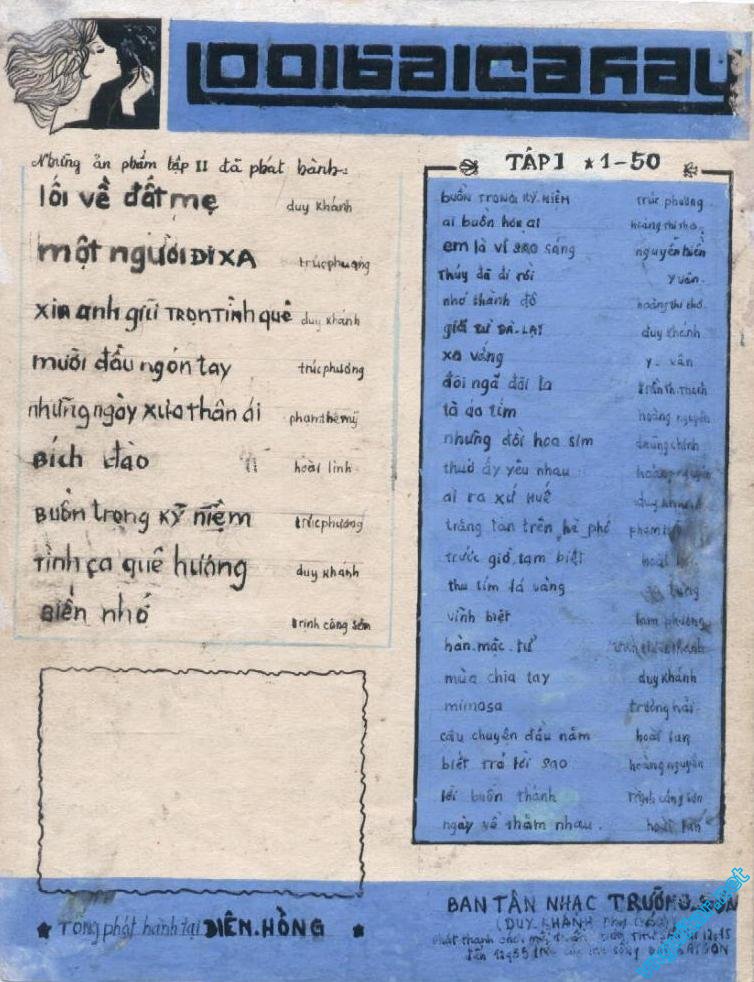 1001 bài ca hay
Những ản phẩm tập II đã phát hành:
lối về đất mẹ duy khánh
một người ĐI XA trúc phương
xin anh giữ TRỌN TÌNH quê duy khánh
mười đầu ngón tay trúc phương
những ngày xưa thân ái phạm thế mỹ
BÍch đào hoài linh
BUỒN trọng KỸ niệm trúc phương
TÌnh ca quê hương duy khánh
BIỂN nhớ trịnh công sơn
TẬP I ★ 1-50
BUỒN TRONG KỶ NIỆM trúc phương
ai buồn hơn ai hoàng thi thơ
em là vì sao sáng nguyễn hiền
Thúy đã đi rồi y vân
nhớ thành đô hoàng thi thơ
giã từ ĐÀ-LẠT duy khánh
xa vắng y. vân
đôi ngã đôi ta trần th. thạch
tà áo tím hoàng nguyên
những đồi hoa sim dzũng chinh
thuở ấy yêu nhau hoàng nguyên
ai ra xứ HUẾ duy khánh
trăng tàn trên hè phố phạm
trước giờ tạm biệt hoài
thu tím lá vàng
vĩnh biệt lam phương
hàn. mặc. tử
mùa chia tay duy khánh
mimosa trường hải
câu chuyện đầu năm hoài lan
biết trả lời sao hoàng nguyên
lời buồn thánh trịnh công sơn
ngày về thăm nhau. hoài lan
★ TỔng phát hành tại DIÊN. HỒNG ★
BAN TÂN NHẠC TRƯỜNG SƠN
(DUY KHÁNH
phát thanh 12g15
đến 12g35 SAIGON